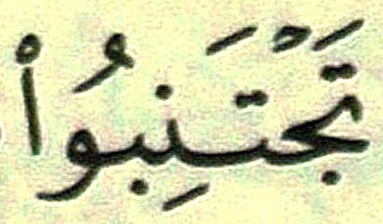 تَجْتَنِبُوا۟